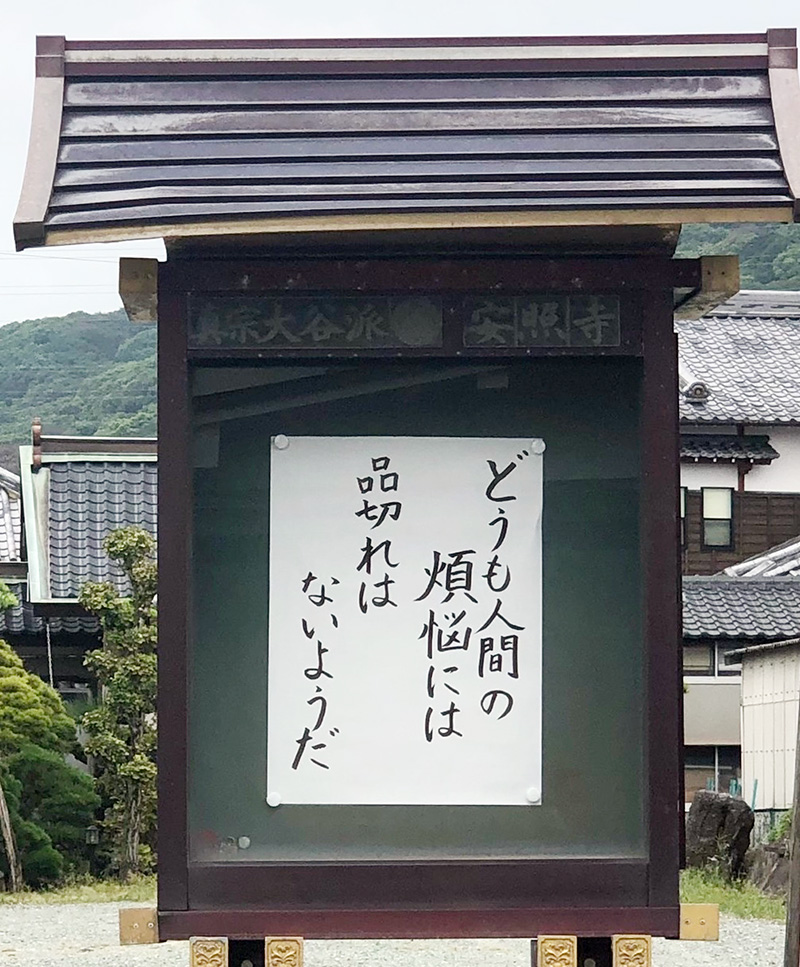 真宗大谷派 安照寺
どうも人間の
煩悩には
品切れは
ないようだ